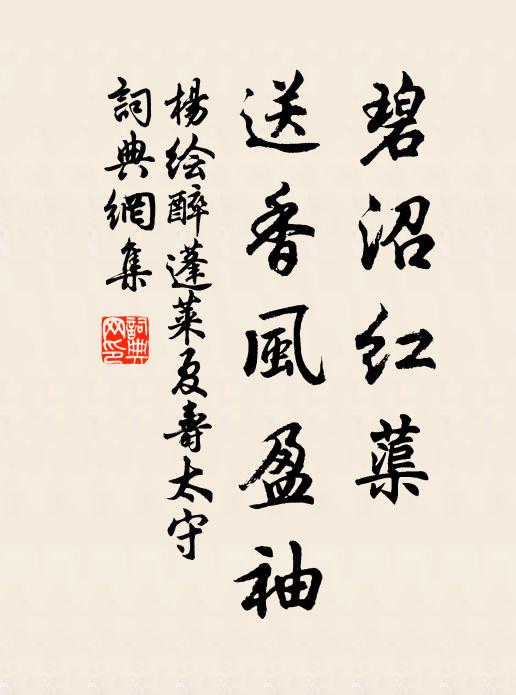 碧沼红蕖
送香風盈袖
楊绘醉蓬莱夏壽太守
詞典網集
詞典网印